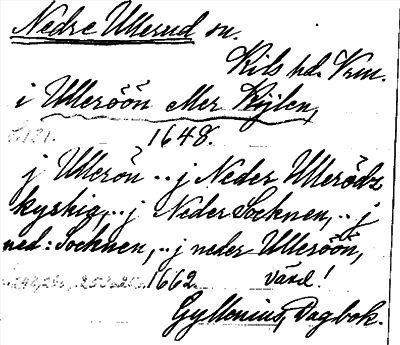 Nedre Ullerud sn.
Kils hd. Vrm.
i Ulleröön eller Kijlen,
1648.
j Ullerön .. j Neder Ullerödz
kyrkia, .. j Neder Sochnen, .. j
ned: Sochnen, .. j neder Ulleröön,
1662. värd!
Gyllenius, Dagbok.